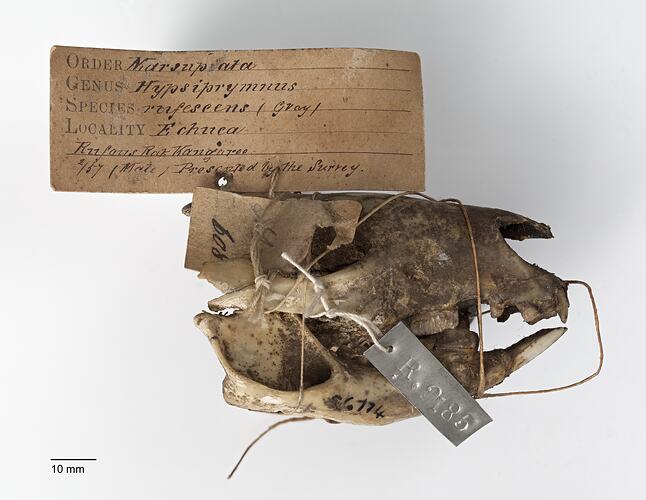 ORDER Marsupiata
GENUS Hypsiprymnus
SPECIES rufescens (Gray)
LOCALITY Echuca
Rufous Rat Kangaroo
2/57 (Male) Presented by the Survey.
608
R.9185
10 mm